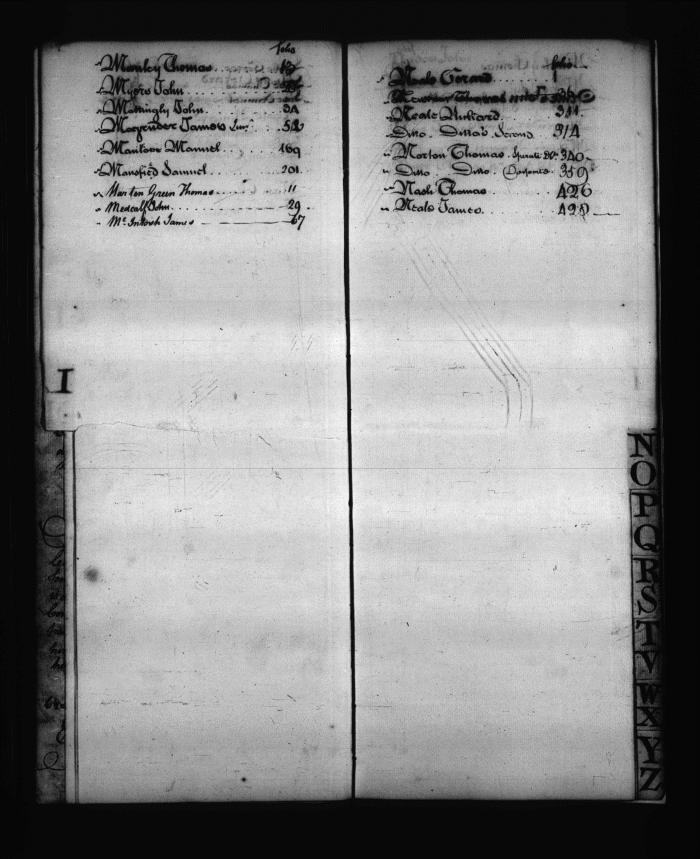 folio
Manley Thomas
Myers John
Mattingly John 34
Magruder James Junr. 52
Mantour Manuel 169
Mansfied Samuel 201
Marten Green Thomas 11
Medcalf John 29
Mc. Intosh James 67
I
folio
Neale Gerard
Neale 311
Ditto Ditto's Second 314
Norton Thomas 340
Ditto Ditto 359
Nash Thomas 426
Neale James
N
O
P
Q
R
S
T
V
W
X
Y
Z